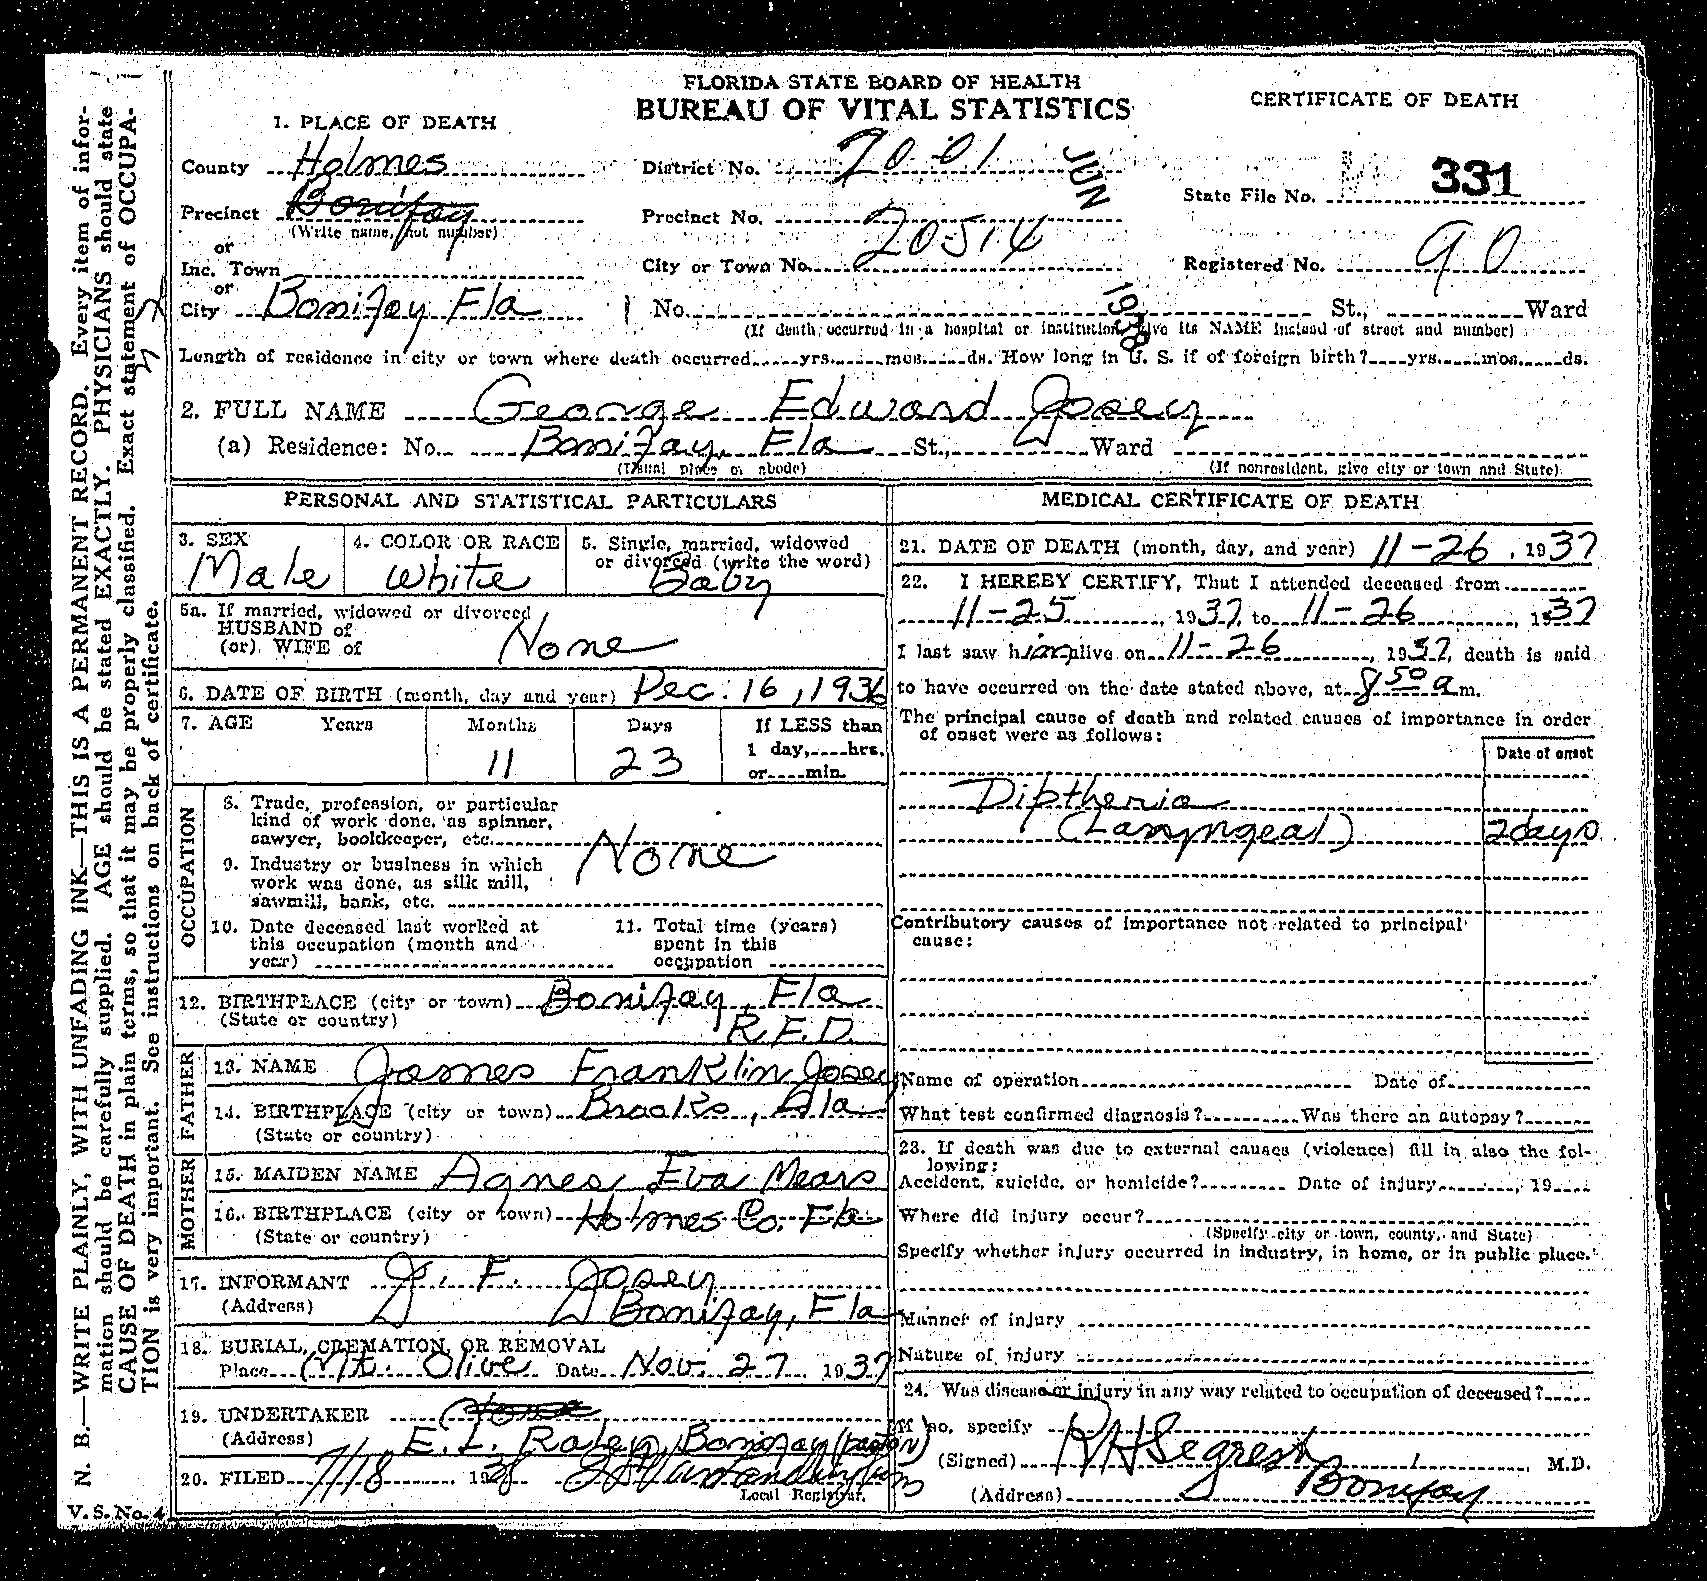 FLORIDA STATE BOARD OF HEALTH
BUREAU OF VITAL STATISTICS
CERTIFICATE OF DEATH
1. PLACE OF DEATH
County Holmes
District No. 70-01
JUN 1938
State File No. 331
Precinct Bonifay
(Write name, not number)
Precinct No.
or
Inc. Town
City or Town No. 20514
Registered No. 90
or
City Bonifay Fla
No. St., Ward
(If death occurred in a hospital or institution, give its NAME instead of street and number)
Length of residence in city or town where death occurred yrs. mos. ds. How long in U. S. if of foreign birth? yrs. mos. ds.
2. FULL NAME George Edward Josey
(a) Residence: No. Bonifay, Fla St., Ward
(Usual place of abode) (If nonresident, give city or town and State)
PERSONAL AND STATISTICAL PARTICULARS
3. SEX
Male
4. COLOR OR RACE
White
5. Single, married, widowed
or divorced (write the word)
Baby
5a. If married, widowed or divorced
HUSBAND of
(or) WIFE of
None
6. DATE OF BIRTH (month, day and year) Dec. 16, 1936
7. AGE Years Months Days If LESS than
1 day, hrs.
or min.
11 23
OCCUPATION
8. Trade, profession, or particular
kind of work done, as spinner,
sawyer, bookkeeper, etc.
None
9. Industry or business in which
work was done, as silk mill,
sawmill, bank, etc.
10. Date deceased last worked at
this occupation (month and
year)
11. Total time (years)
spent in this
occupation
12. BIRTHPLACE (city or town) Bonifay, Fla
(State or country) R.F.D.
FATHER
13. NAME James Franklin Josey
14. BIRTHPLACE (city or town) Brooks, Ala
(State or country)
MOTHER
15. MAIDEN NAME Agnes Eva Mears
16. BIRTHPLACE (city or town) Holmes Co. Fla
(State or country)
17. INFORMANT J. F. Josey
(Address) Bonifay, Fla
18. BURIAL, CREMATION, OR REMOVAL
Place Mt. Olive Date Nov. 27 1937
19. UNDERTAKER None
(Address) E. I. Raley, Bonifay
20. FILED 7/18 1938
Local Registrar.
MEDICAL CERTIFICATE OF DEATH
21. DATE OF DEATH (month, day, and year) 11-26, 1937
22. I HEREBY CERTIFY, That I attended deceased from
11-25, 1937, to 11-26, 1937
I last saw him alive on 11-26, 1937, death is said
to have occurred on the date stated above, at 8 50 a m.
The principal cause of death and related causes of importance in order
of onset were as follows:
Date of onset
Diptheria
(Laryngeal) 2 days
Contributory causes of importance not related to principal
cause:
Name of operation Date of
What test confirmed diagnosis? Was there an autopsy?
23. If death was due to external causes (violence) fill in also the fol-
lowing:
Accident, suicide, or homicide? Date of injury , 19
Where did injury occur?
(Specify city or town, county, and State)
Specify whether injury occurred in industry, in home, or in public place.
Manner of injury
Nature of injury
24. Was disease or injury in any way related to occupation of deceased?
If so, specify
(Signed) R H Segrest, M.D.
(Address) Bonifay
N. B.—WRITE PLAINLY, WITH UNFADING INK—THIS IS A PERMANENT RECORD. Every item of infor-
mation should be carefully supplied. AGE should be stated EXACTLY. PHYSICIANS should state
CAUSE OF DEATH in plain terms, so that it may be properly classified. Exact statement of OCCUPA-
TION is very important. See instructions on back of certificate.
V. S. No. 4